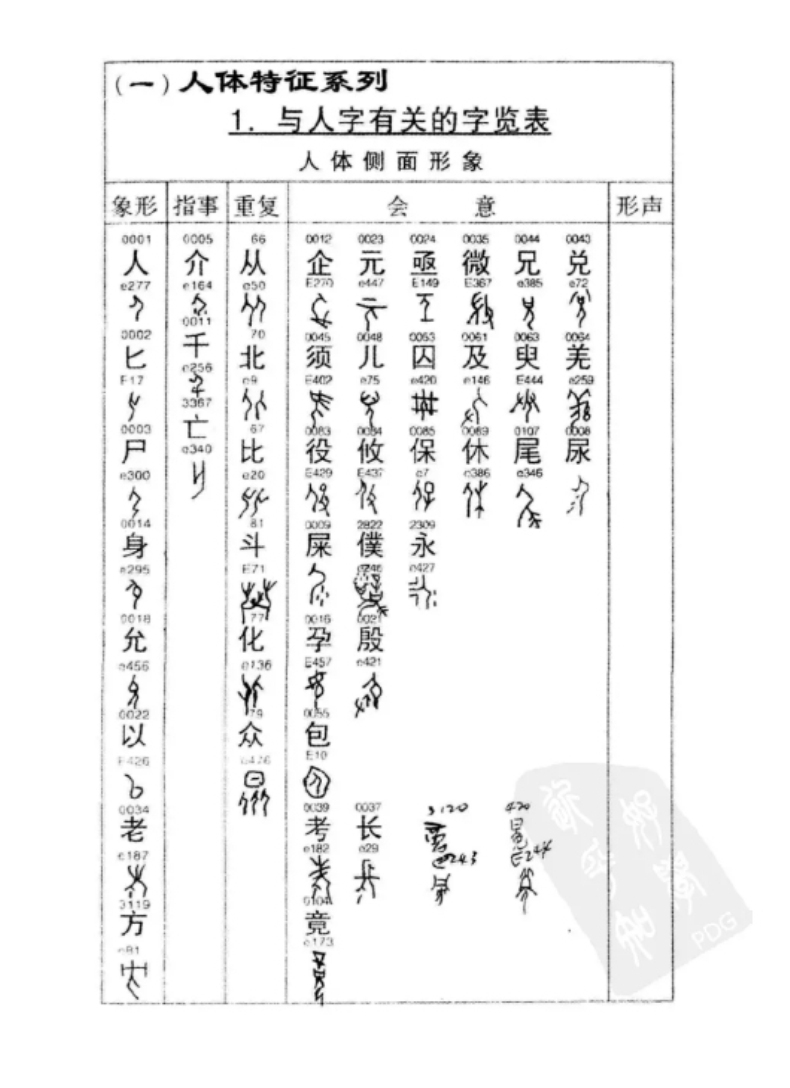 （一）人体特征系列
1．与人字有关的字览表
人体侧面形象
象形 指事 重复 会意 形声
0001 0005 66 0012 0023 0024 0035 0044 0043
人 介 从 企 元 亟 微 兄 兑
e277 e164 e50 E270 e447 E149 E367 e385 e72
0011
0002 千 70 0045 0048 0053 0061 0063 0064
匕 e256 北 须 儿 囚 及 臾 羌
E17 3367 e9 E402 e75 e420 e146 E444 e259
0003 亡 67 0083 0084 0085 0089 0107 0008
尸 e340 比 役 攸 保 休 尾 尿
e300 e20 E429 E437 e7 e386 e346
0014 81 0009 2822 2309
身 斗 屎 僕 永
e295 E71 e427
0018 77 0016 0021
允 化 孕 殷
e456 e136 E457 e421
0022 79 0055
以 众 包
E426 e476 E10
0034 0039 0037 3120 420
老 考 长
e187 e182 e29 E243 E244
3119 0104
方 竟
e81 e173
PDG